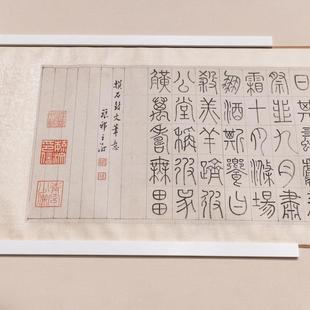 日其蚤獻羔
祭韭九月肅
霜十月滌場
朋酒斯饗曰
殺羔羊躋彼
公堂稱彼兕
觥萬壽無畺
石鼓文筆意
琅邪王澍